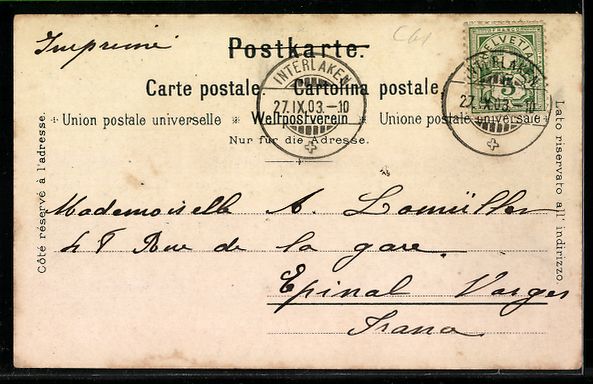 Imprimé
Postkarte.
C61
HELVETIA
5
Carte postale. Cartolina postale.
INTERLAKEN
27.IX.03.-10
INTERLAKEN
27.IX.03.-10
Union postale universelle * Weltpostverein * Unione postale universale
Nur für die Adresse.
Côté réservé à l'adresse.
Lato riservato all' indirizzo
Mademoiselle A. Lamüller
48 Rue de la gare
Epinal Vosges